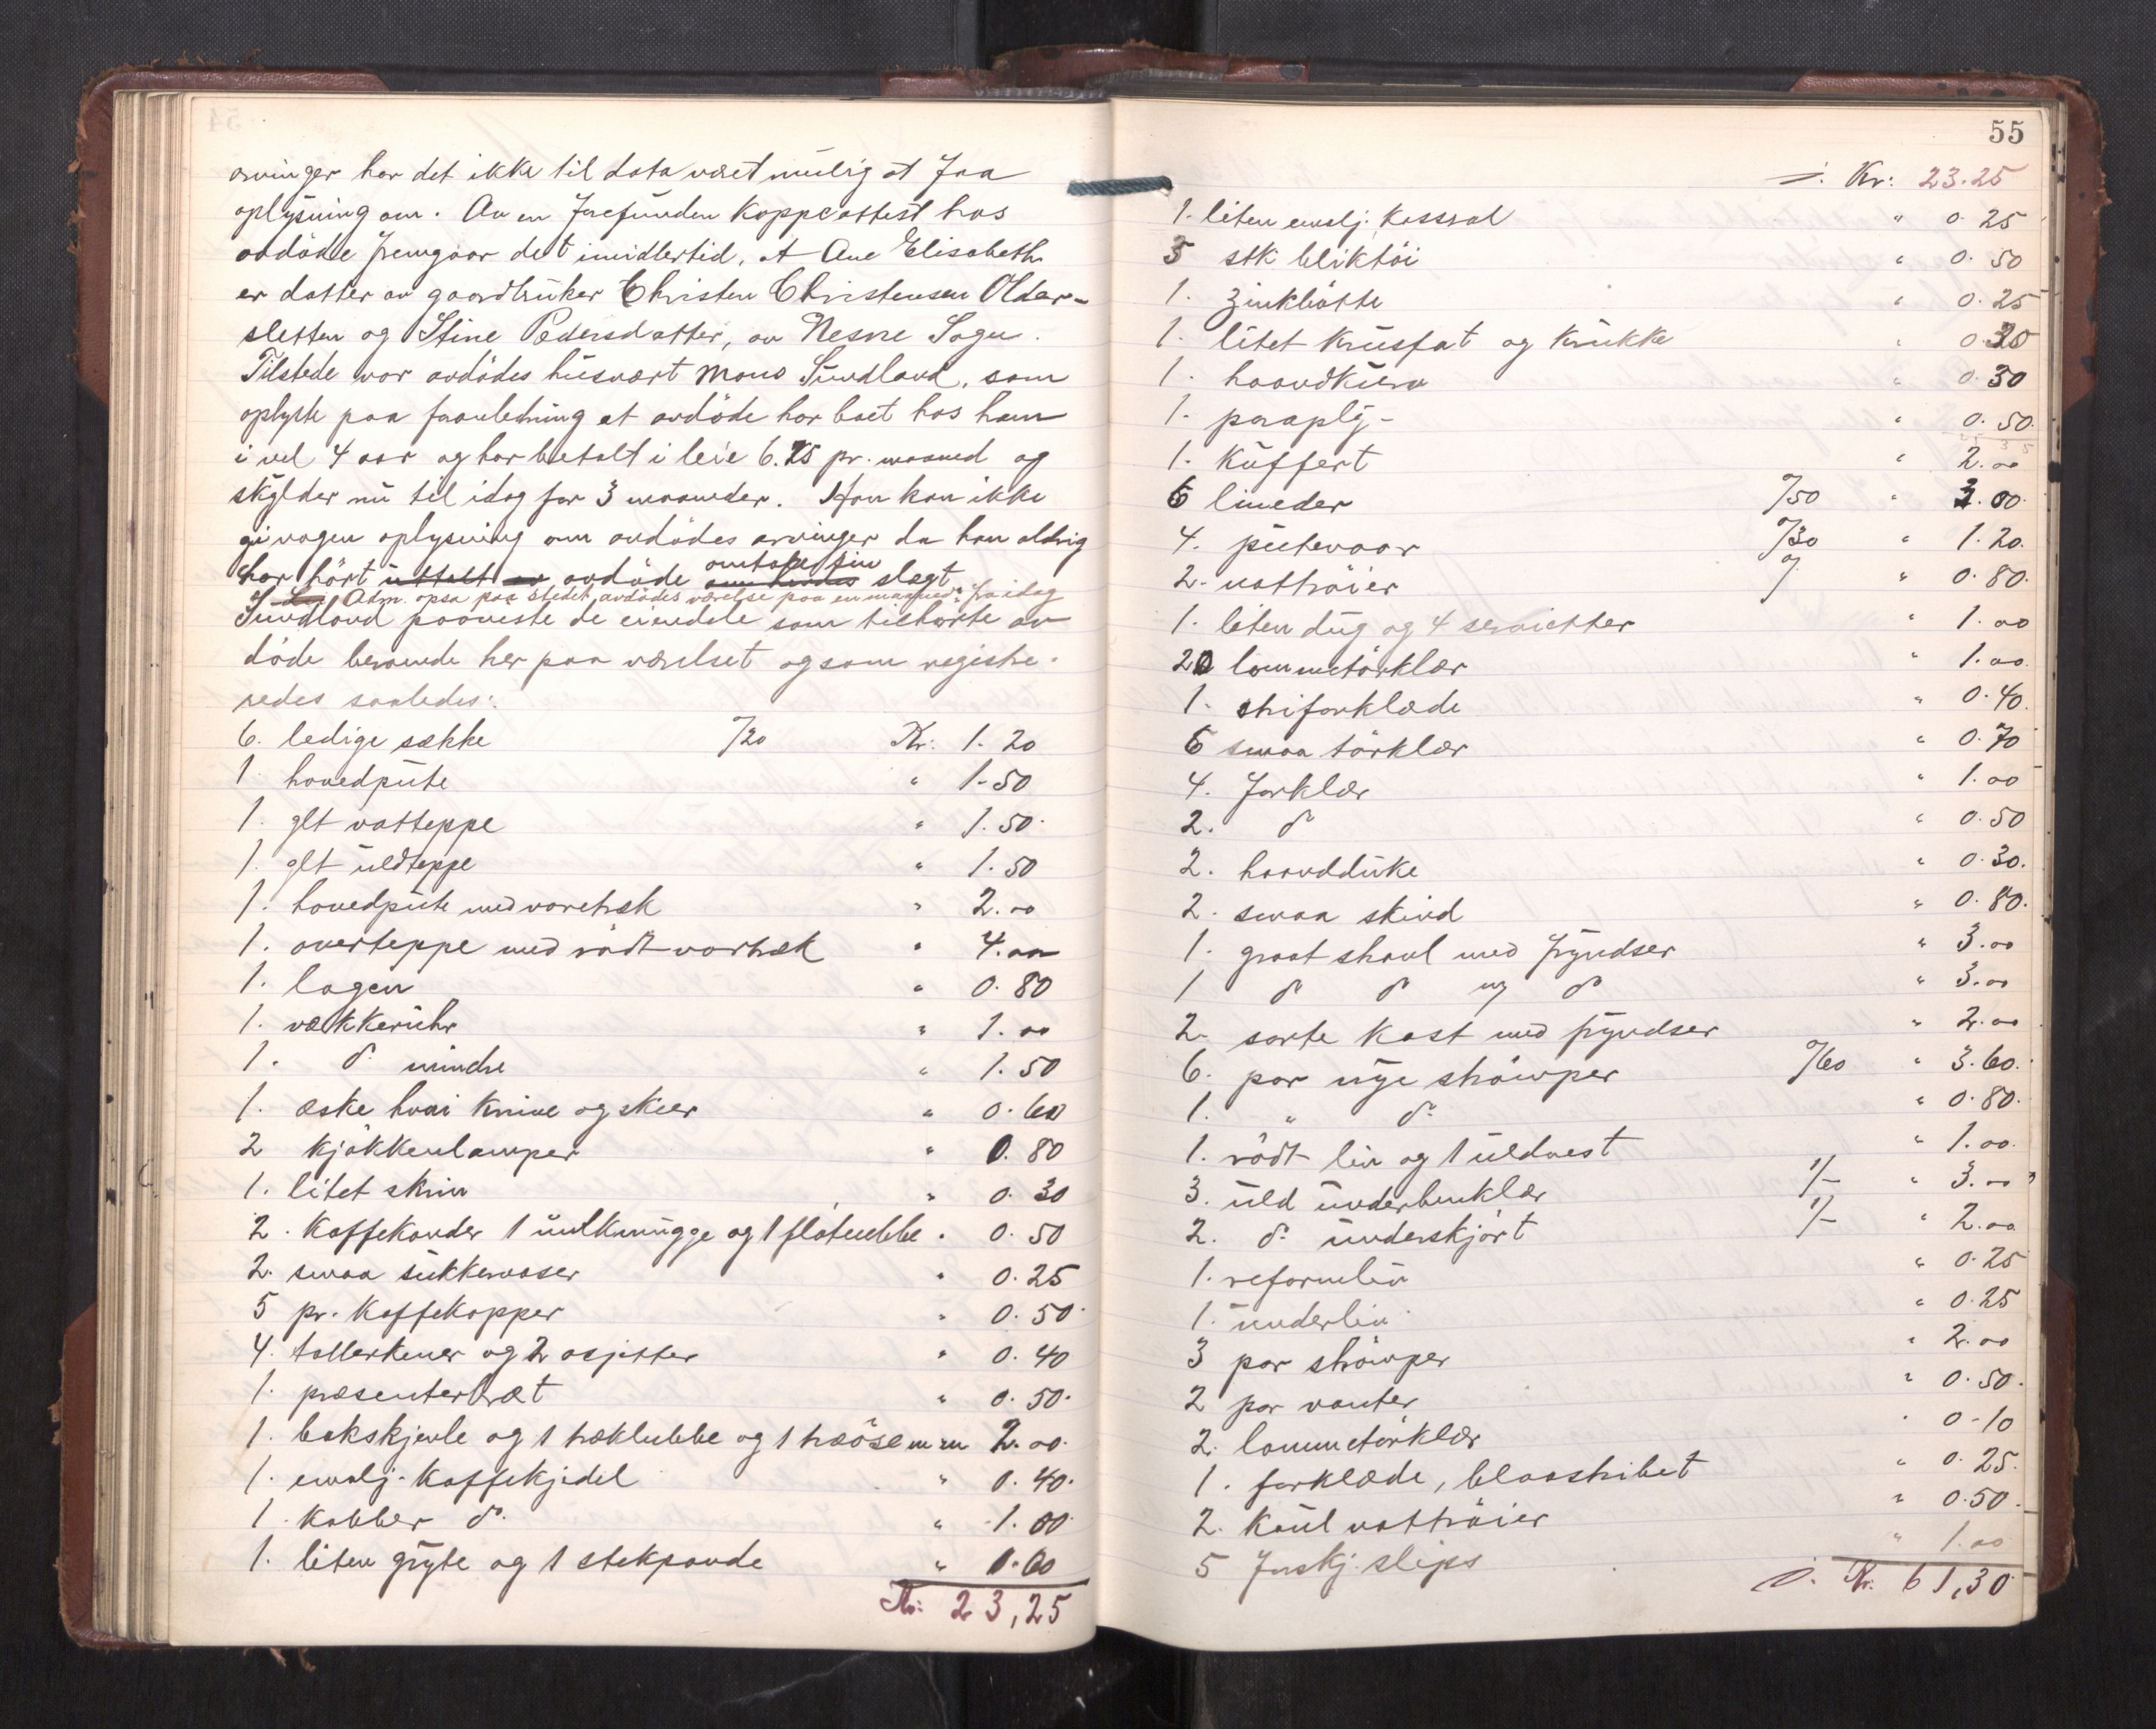 arvinger har det ikke til dato været mulig at faa
oplysning om. Av en forefunden Koppeattest hos
avdöde fremgaar det imidlertid, at Ane Elisabeth
er datter av gaardbruker Christen Christensen Older-
sletten og Stine Pedersdatter, av Nesne Sogn.
Tilstede var avdödes husvært Mons Sundland, som
oplyste paa foranledning at avdöde har boet hos ham
i vel 4 aar og har betalt i leie 6.75 pr. maaned og
skylder nu til idag for 3 maaneder. Han kan ikke
gi nogen oplysning om avdödes arvinger da han aldrig
har hört uttalt av avdöde omtale sin slegt
Adm. opsa paa stedet avdödes værelse paa en maaned fra idag
Sundland paaviste de eiendele som tilhørte av
döde beroende her paa værelset og som registre-
redes saaledes:
6. ledige sække 7/20 Kr: 1.20
1. hovedpute " 1.50
1. glt vatteppe " 1.50
1. glt uldteppe " 1.50
1. hovedpute med varetræk " 2.00
1. overteppe med rödt vartræk " 4.00
1. lagen " 0.80
1. vækkeruhr " 1.00
1. do mindre " 1.50
1. æske hvori knive og skeer " 0.60
2 kjökkenlamper " 0.80
1. litet skrin " 0.30
2. Kaffekander 1 mulkmugge og 1 fløtenebbe " 0.50
2. smaa sukkervaser " 0.25
5 pr. Kaffekopper " 0.50
4. tallerkener og 2 asjetter " 0.40
1. præsenterbræt " 0.50
1. bakskjevle og 1 træklubbe og 1 træöse m m 2.00
1. emalj. Kaffekjedel " 0.40
1. Kobber do. " 1.00
1. liten gryte og 1 stekpande " 0.60
Kr: 23,25
55
Kr: 23.25
1. liten emalj. Kasserol " 0.25
5 stk bliktöi " 0.50
1. Zinkbötte " 0.25
1. litet Krusfat og Krukke " 0.30
1. haandkurv " 0.30
1. paraply " 0.50
1. Kuffert " 2.00
6 lineder 7/50 " 3.00
4. putevaar 7/30 " 1.20
2. nattröier " 0.80
1. liten dug og 4 servietter " 1.00
20 lommetörklær " 1.00
1. striforklæde " 0.40
6 smaa törklær " 0.70
4. Forklær " 1.00
2. do " 0.50
2. haandduke " 0.30
2. smaa skind " 0.80
1. graat shavl med fryndser " 3.00
1 do do og do " 3.00
2. sorte Kast med fryndser " 2.00
6. par nye strömper 7/60 " 3.60
1. " do " 0.80
1. rödt liv og 1 uldvest " 1.00
3. uld underbenklær 1/- " 3.00
2. do. underskjört 1/- " 2.00
1. reformliv " 0.25
1. underliv " 0.25
3 par strömper " 2.00
2 par vanter " 0.50
2. lommetörklær " 0.10
1. forklæde, blaastribet " 0.25
2. Kaul nattröier " 0.50
5 forskj. slips " 1.00
Kr. 61,30